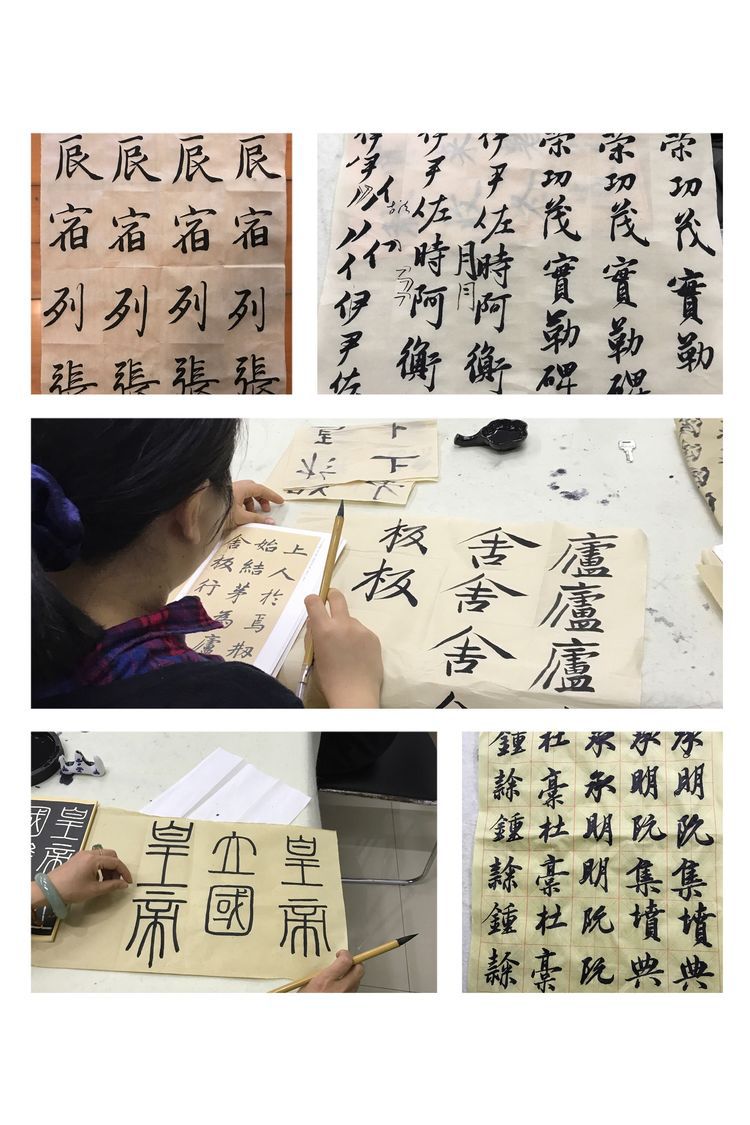 辰宿列張
辰宿列張
辰宿列張
辰宿列張
策功茂實勒
策功茂實勒碑
策功茂實勒碑
伊尹佐時阿衡
月月
伊尹佐時阿衡
伊尹佐
上人於焉刱
始結茅為廬
舍板行
廬廬廬
舍舍舍
板板
皇帝
國
皇帝
立國
皇帝
承明阮集墳典
承明阮集墳典
承承明明阮阮
杜稾杜稾杜稾
鍾隸鍾隸鍾隸